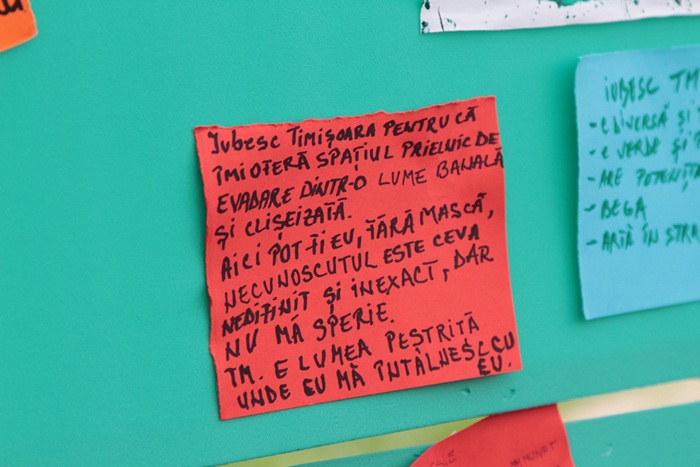 Iubesc Timișoara pentru că
îmi oferă spațiul prielnic de
evadare dintr-o lume banală
și clișeizată.
Aici pot fi eu, fără mască,
necunoscutul este ceva
nedifinit și inexact, dar
nu mă sperie.
TM. e lumea pestriță
unde eu mă întâlnesc cu
eu.
iubesc TM
- e diversă și
- e verde și
- are
- Bega
- artă în